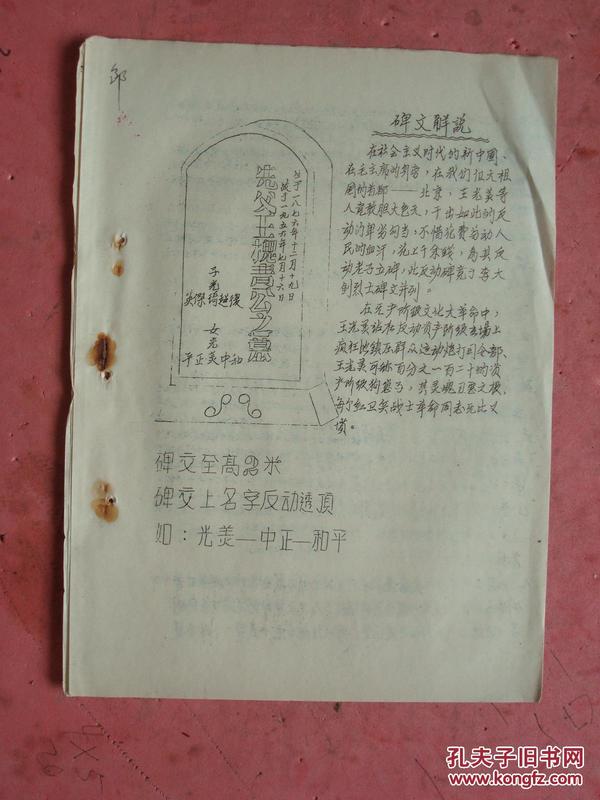 邹
碑文解説
在社会主义时代的新中国、
在毛主席的身旁，在我们伟大祖
国的首都——北京，王光美等
人竟敢胆大包天，干出如此的反
动的卑劣勾当，不惜花费劳动人
民的血汗，花上千余钱，为其反
动老子立碑，此反动碑竟与李大
钊烈士碑文并列。
在无产阶级文化大革命中，
王光美站在反动资产阶级立场上
疯狂地镇压群众运动炮打司令部、
王光美可称百分之一百二十的资
产阶级狗婆了，其灵魂丑恶之极，
每个红卫兵战士革命同志无比义
愤。
生于一八七六年十二月十九日
故于一九五六年七月十六日
先父王槐青公之墓
子光
英傑琦超復
女光
平正美中和
碑文全高 米
碑文上名字反动透頂
如：光美—中正—和平
孔夫子旧书网
www.kongfz.com